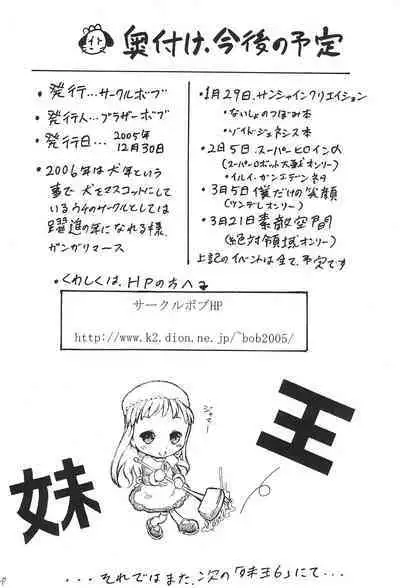 奥付け、今後の予定
・発行…サークルボブ
・発行人…ブラザーボブ
・発行日…2005年
12月30日
・2006年は犬年という
事で犬をマスコットにして
いるウチのサークルとしては
躍進の年になれる様、
ガンガリマース
・1月29日、サンシャインクリエイション
・ないしょのつぼみ本
・ゾイドジェネシス本
・2月5日、スーパーヒロインの
(スーパーロボット大戦オンリー)
・イルイ・ガンエデンネタ
・3月5日僕だけの笑顔
(ツンデレオンリー)
・3月21日素敵空間
(絶対領域オンリー)
上記のイベントは全て、予定です
・くわしくは、HPの方へ
サークルボブHP
http://www.k2.dion.ne.jp/~bob2005/
妹
王
・・・それではまた、次の「妹王6」にて・・・